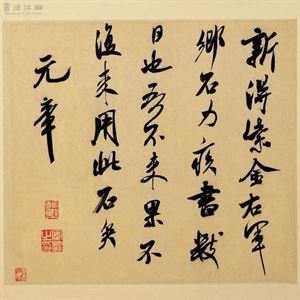 新得紫金右軍
鄉石力疾書數
日也吾不來果不
復來用此石矣
元章
書法江湖